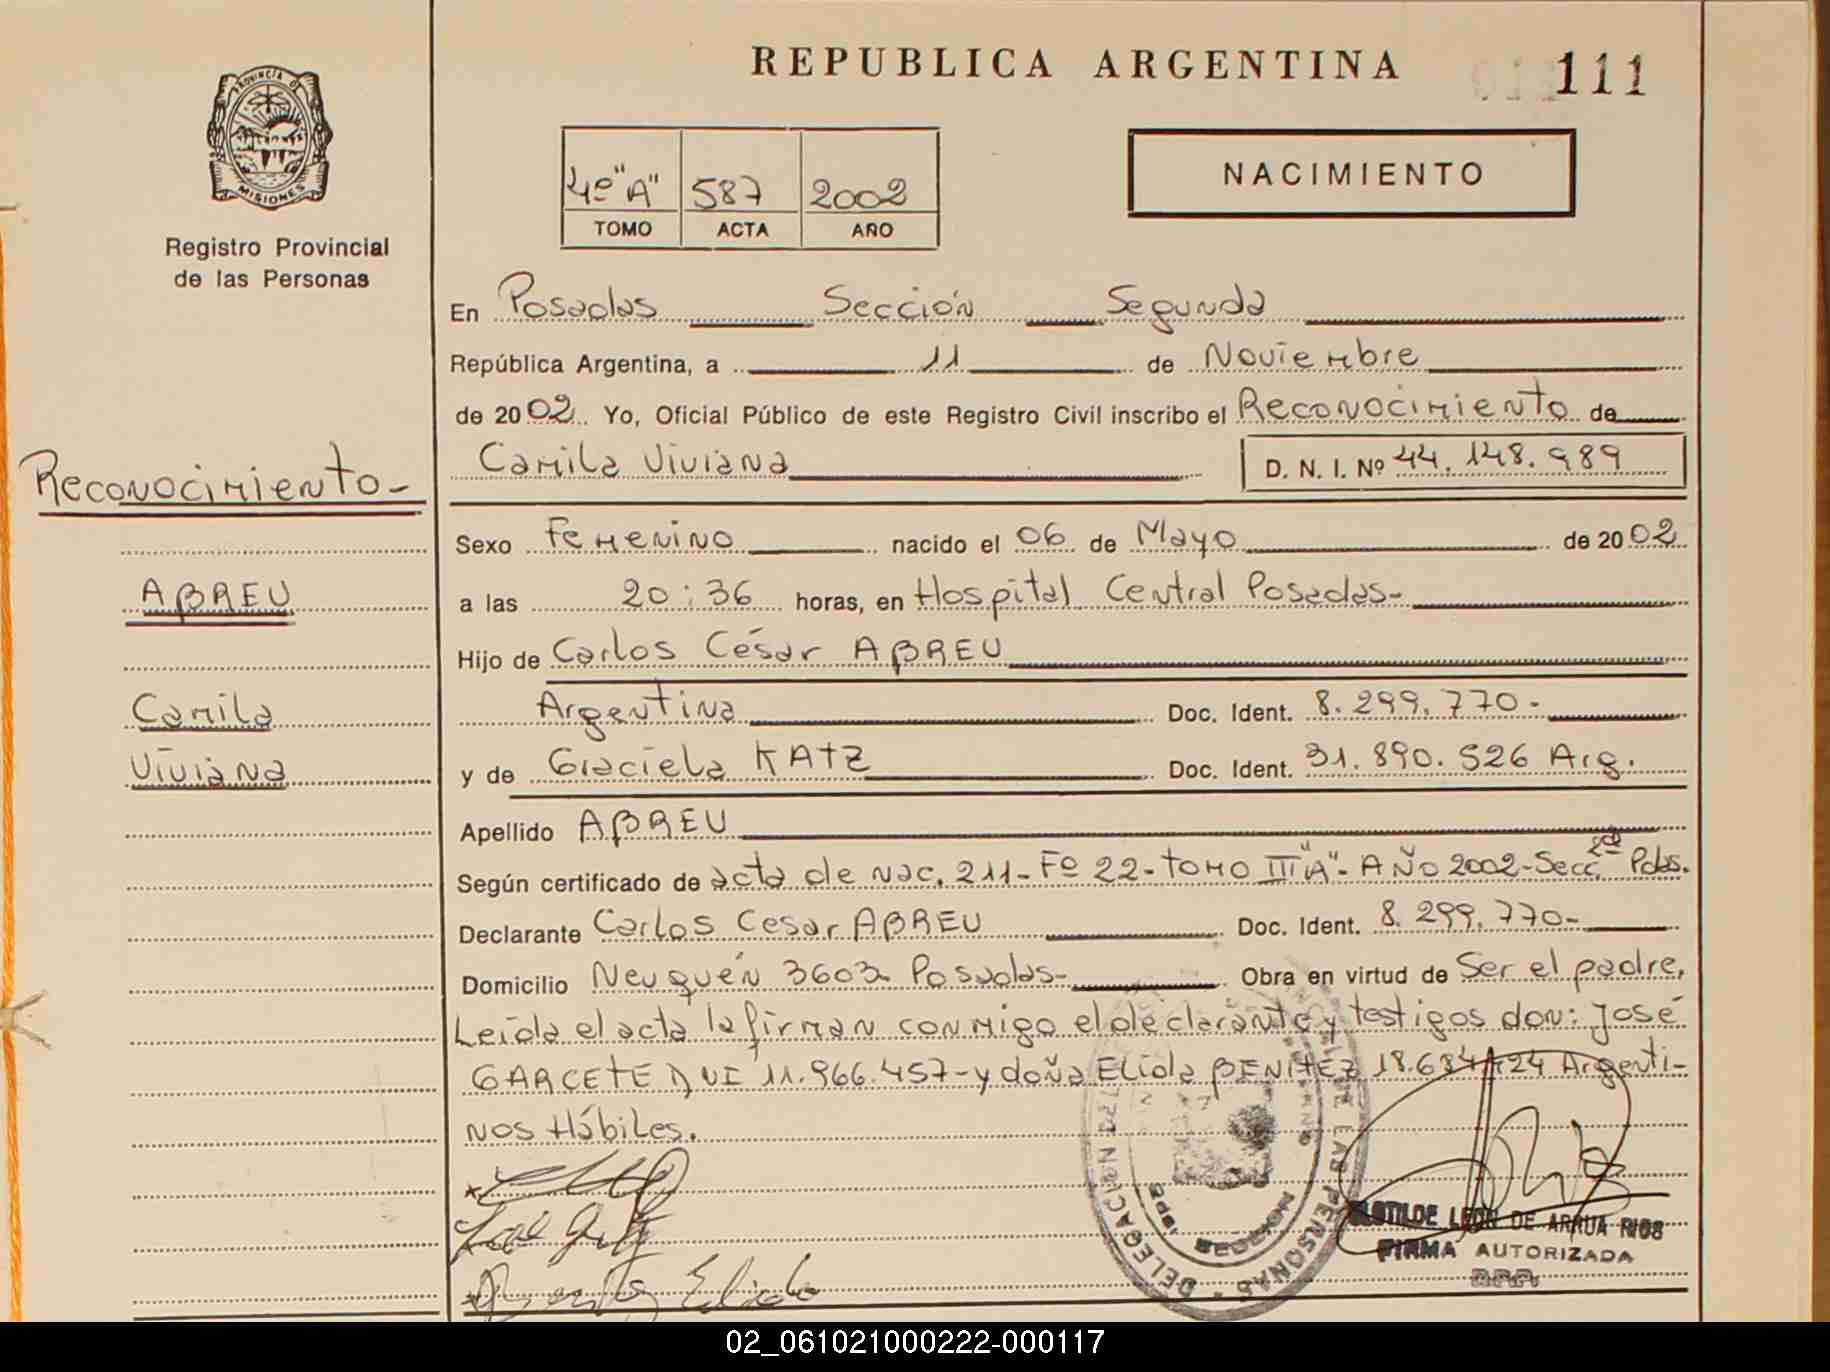 REPUBLICA ARGENTINA
111
PROVINCIA DE
MISIONES
Registro Provincial
de las Personas
4º "A" 587 2002
TOMO ACTA AÑO
NACIMIENTO
En Posadas Sección Segunda
República Argentina, a 11 de Noviembre
de 2002 Yo, Oficial Público de este Registro Civil inscribo el Reconocimiento de
Camila Viviana D. N. I. Nº 44.148.989
Reconocimiento-
Sexo Femenino nacido el 06 de Mayo de 2002
ABREU
a las 20:36 horas, en Hospital Central Posadas-
Hijo de Carlos César ABREU
Camila
Argentina Doc. Ident. 8.299.770-
Viviana
y de Graciela KATZ Doc. Ident. 31.890.526 Arg.
Apellido ABREU
Según certificado de acta de nac. 211-Fº 22-tomo III"A"-AÑO 2002-Secc. 2da Pdas.
Declarante Carlos Cesar ABREU Doc. Ident. 8.299.770-
Domicilio Neuquén 3603 Posadas- Obra en virtud de Ser el padre.
Leída el acta la firman conmigo el declarante y testigos don: José
GARCETE DNI 11.966.457-y doña Elida BENITEZ 18.684.424 Argenti-
nos Hábiles.
DELEGACION
SECCION
DE LAS PERSONAS
CLOTILDE LEON DE ARRUA RIOS
FIRMA AUTORIZADA
R.P.P.
02_061021000222-000117